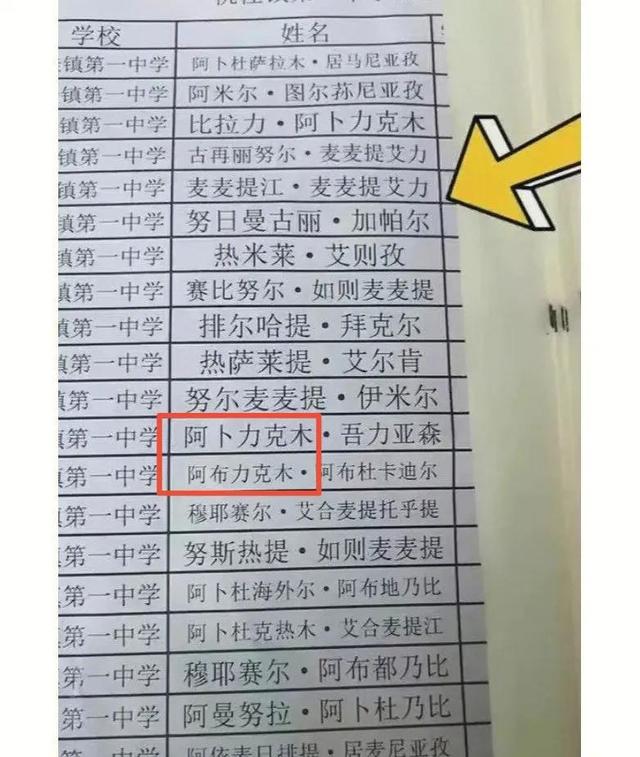 学校 姓名
镇第一中学 阿卜杜萨拉木·居马尼亚孜
镇第一中学 阿米尔·图尔荪尼亚孜
镇第一中学 比拉力·阿卜力克木
镇第一中学 古再丽努尔·麦麦提艾力
镇第一中学 麦麦提江·麦麦提艾力
镇第一中学 努日曼古丽·加帕尔
镇第一中学 热米莱·艾则孜
镇第一中学 赛比努尔·如则麦麦提
镇第一中学 排尔哈提·拜克尔
镇第一中学 热萨莱提·艾尔肯
镇第一中学 努尔麦麦提·伊米尔
镇第一中学 阿卜力克木·吾力亚森
镇第一中学 阿布力克木·阿布杜卡迪尔
镇第一中学 穆耶赛尔·艾合麦提托乎提
镇第一中学 努斯热提·如则麦麦提
第一中学 阿卜杜海外尔·阿布地乃比
第一中学 阿卜杜克热木·艾合麦提江
第一中学 穆耶赛尔·阿布都乃比
第一中学 阿曼努拉·阿卜杜乃比
第一中学 阿依素日排提·居麦尼亚孜